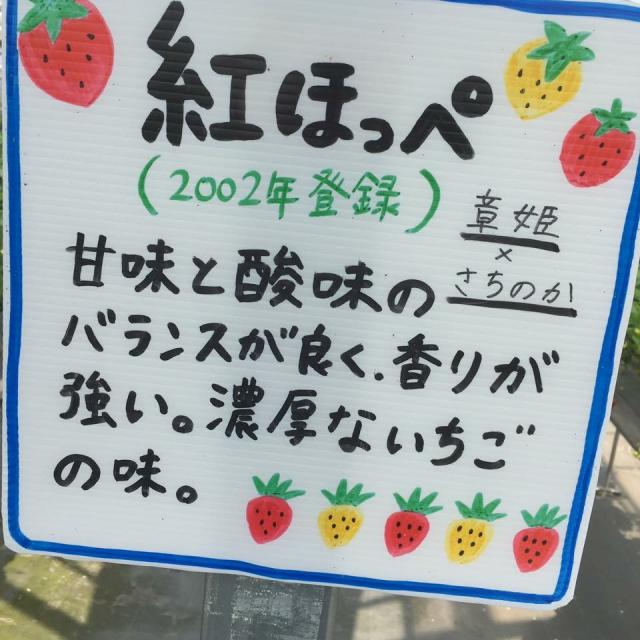 紅ほっぺ
(2002年登録)
章姫
×
さちのか
甘味と酸味の
バランスが良く、香りが
強い。濃厚ないちご
の味。